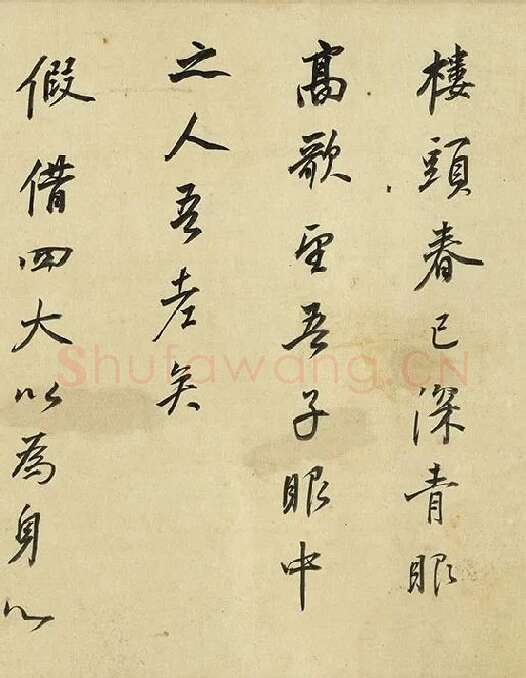 樓頭春已深青眼
髙歌望吾子眼中
之人吾老矣
假借四大以為身心
Shufawang.CN